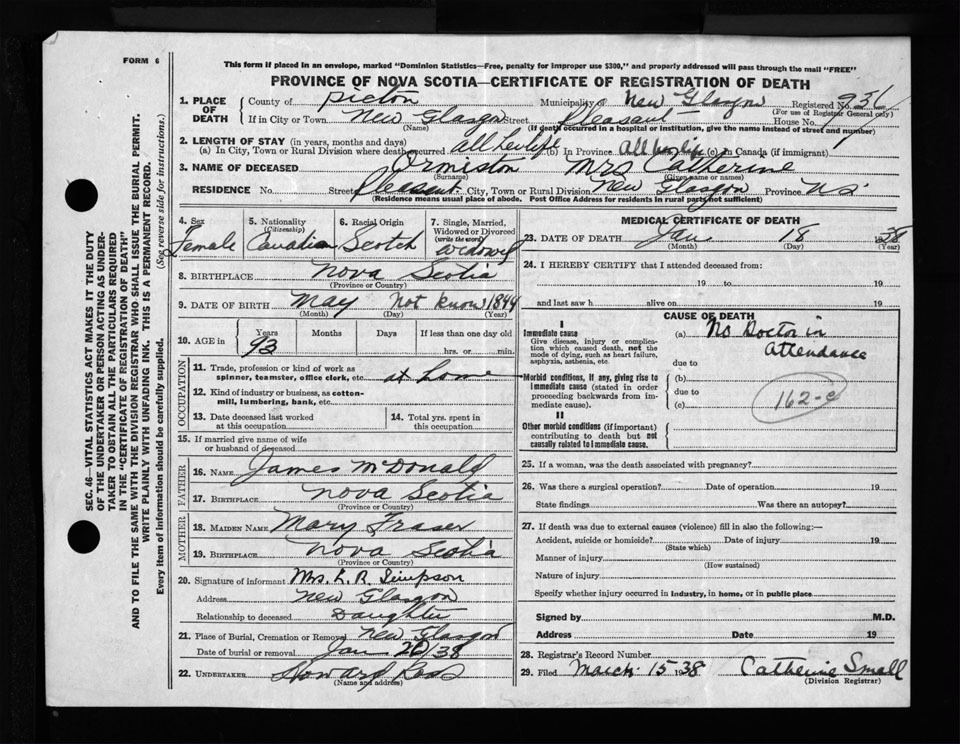 FORM 6
This form if placed in an envelope, marked "Dominion Statistics—Free, penalty for improper use $300," and properly addressed will pass through the mail "FREE"
PROVINCE OF NOVA SCOTIA—CERTIFICATE OF REGISTRATION OF DEATH
1. PLACE OF DEATH County of Pictou Municipality of New Glasgow Registered No. 931
(For use of Registrar General only)
If in City or Town New Glasgow Street Pleasant House No.
(Name) (If death occurred in a hospital or institution, give the name instead of street and number)
2. LENGTH OF STAY (in years, months and days)
(a) In City, Town or Rural Division where death occurred all her life (b) In Province All her life (c) in Canada (if immigrant)
3. NAME OF DECEASED Ormiston Mrs Catherine
(Surname) (Given name or names)
RESIDENCE No. Street Pleasant City, Town or Rural Division New Glasgow Province N.S.
(Residence means usual place of abode. Post Office Address for Residents in rural parts not sufficient)
4. Sex Female
5. Nationality (Citizenship) Canadian
6. Racial Origin Scotch
7. Single, Married, Widowed or Divorced (write the word) widowed
8. BIRTHPLACE Nova Scotia
(Province or Country)
9. DATE OF BIRTH May Not know 1844
(Month) (Day) (Year)
10. AGE in Years Months Days If less than one day old
93 hrs. or min.
OCCUPATION
11. Trade, profession or kind of work as spinner, teamster, office clerk, etc. at home
12. Kind of industry or business, as cotton-mill, lumbering, bank, etc.
13. Date deceased last worked at this occupation
14. Total yrs. spent in this occupation
15. If married give name of wife or husband of deceased
FATHER
16. NAME James McDonald
17. BIRTHPLACE Nova Scotia
(Province or Country)
MOTHER
18. MAIDEN NAME Mary Fraser
19. BIRTHPLACE Nova Scotia
(Province or Country)
20. Signature of informant Mrs. L. R. Simpson
Address New Glasgow
Relationship to deceased Daughter
21. Place of Burial, Cremation or Removal New Glasgow
Date of burial or removal Jan 20/38
22. UNDERTAKER Howard Ross
(Name and address)
MEDICAL CERTIFICATE OF DEATH
23. DATE OF DEATH Jan 18 1938
(Month) (Day) (Year)
24. I HEREBY CERTIFY that I attended deceased from:
19 to 19
and last saw h alive on 19
CAUSE OF DEATH
I
Immediate cause
Give disease, injury or complication which caused death, not the mode of dying, such as heart failure, asphyxia, asthenia, etc.
(a) No Doctor in Attendance
due to
Morbid conditions, if any, giving rise to immediate cause (stated in order proceeding backwards from immediate cause).
(b)
due to
(c)
162-c
II
Other morbid conditions (if important) contributing to death but not causally related to immediate cause.
25. If a woman, was the death associated with pregnancy?
26. Was there a surgical operation? Date of operation 19
State findings Was there an autopsy?
27. If death was due to external causes (violence) fill in also the following:—
Accident, suicide or homicide? Date of injury 19
(State which)
Manner of injury
(How sustained)
Nature of injury
Specify whether injury occurred in industry, in home, or in public place
Signed by M.D.
Address Date 19
28. Registrar's Record Number
29. Filed March 15 1938 Catherine Small
(Division Registrar)
SEC. 46—VITAL STATISTICS ACT MAKES IT THE DUTY
OF THE UNDERTAKER OR PERSON ACTING AS UNDER-
TAKER TO OBTAIN ALL THE PARTICULARS REQUIRED
IN THE "CERTIFICATE OF REGISTRATION OF DEATH"
AND TO FILE THE SAME WITH THE DIVISION REGISTRAR WHO SHALL ISSUE THE BURIAL PERMIT.
WRITE PLAINLY WITH UNFADING INK. THIS IS A PERMANENT RECORD.
Every item of information should be carefully supplied. (See reverse side for instructions.)